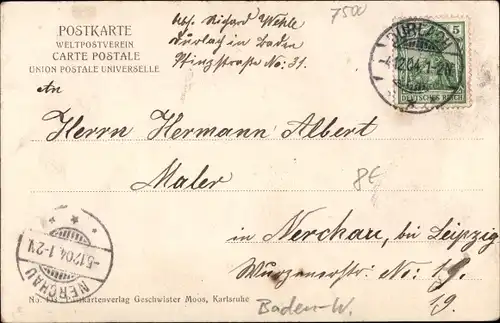 POSTKARTE
WELTPOSTVEREIN
CARTE POSTALE
UNION POSTALE UNIVERSELLE
Abs. Richard Wehle
Durlach in Baden
Nr. 31.
7500
DURLACH
4.12.04.1-2N.
5
DEUTSCHES REICH
An
Herrn Hermann Albert
Maler
8€
in Nerchau, bei Leipzig
Wurzenerstr. No: 19.
19.
NERCHAU
-5.12.04.1-2N.
Kartenverlag Geschwister Moos, Karlsruhe
Baden-W.